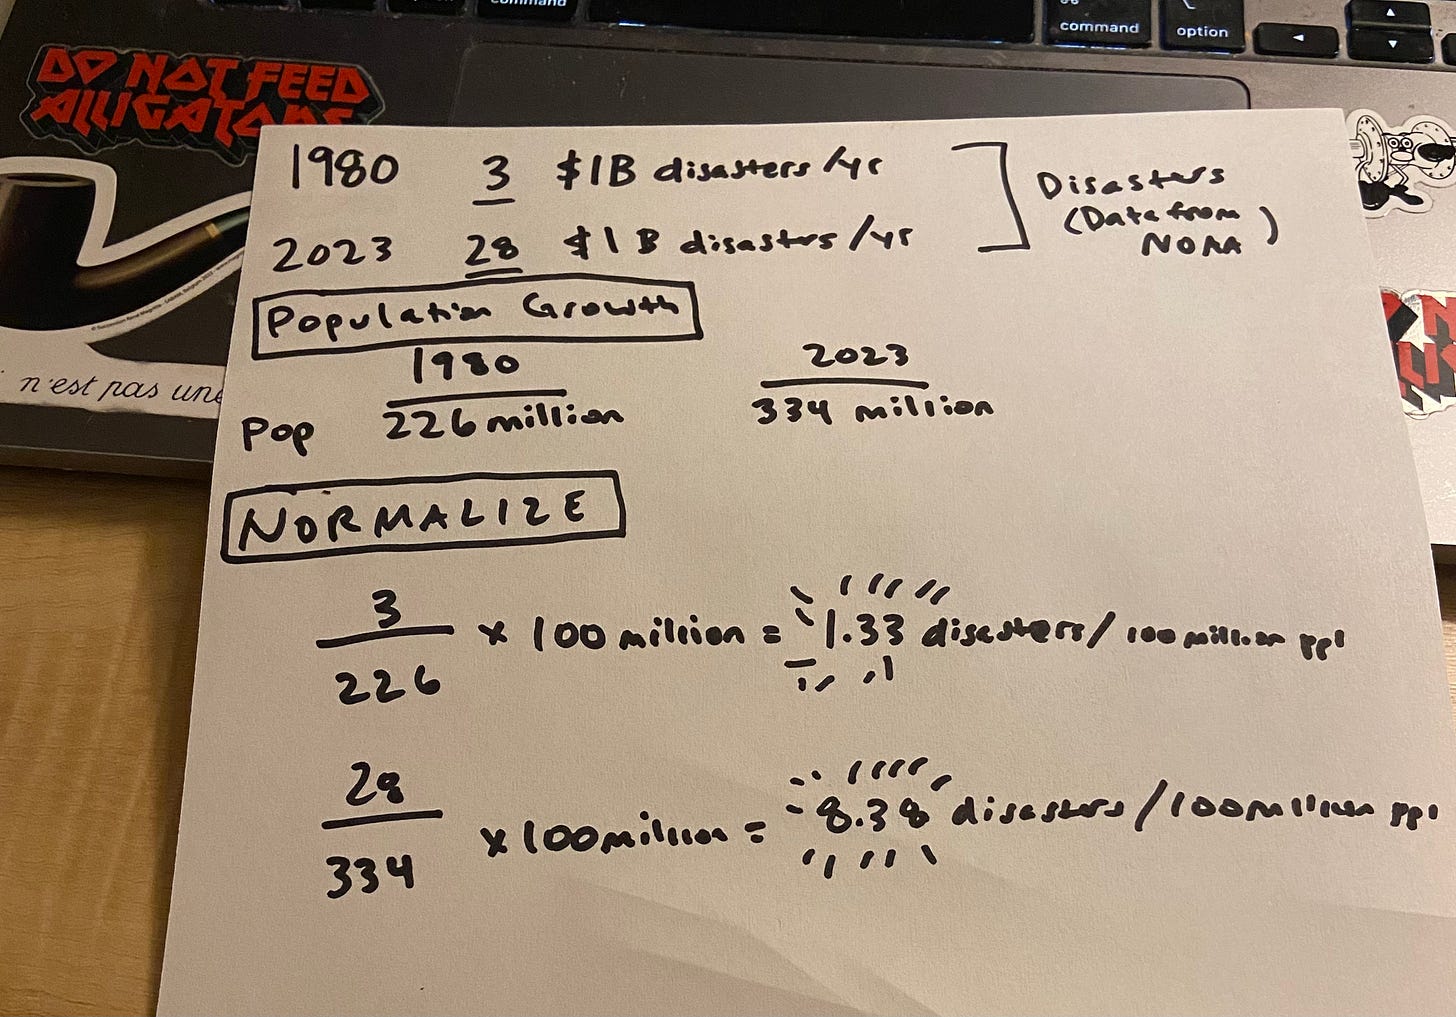 command
command
option
DO NOT FEED
ALLIGATORS
n'est pas une
1980 3 $1B disasters/yr
2023 28 $1B disastrs/yr
Disasters
(Data from
NOAA)
Population Growth
1980 2023
Pop 226 million 334 million
NORMALIZE
3
226
x 100 million = 1.33 disasters/100 million ppl
28
334
x 100 million = 8.38 disasters/100 million ppl